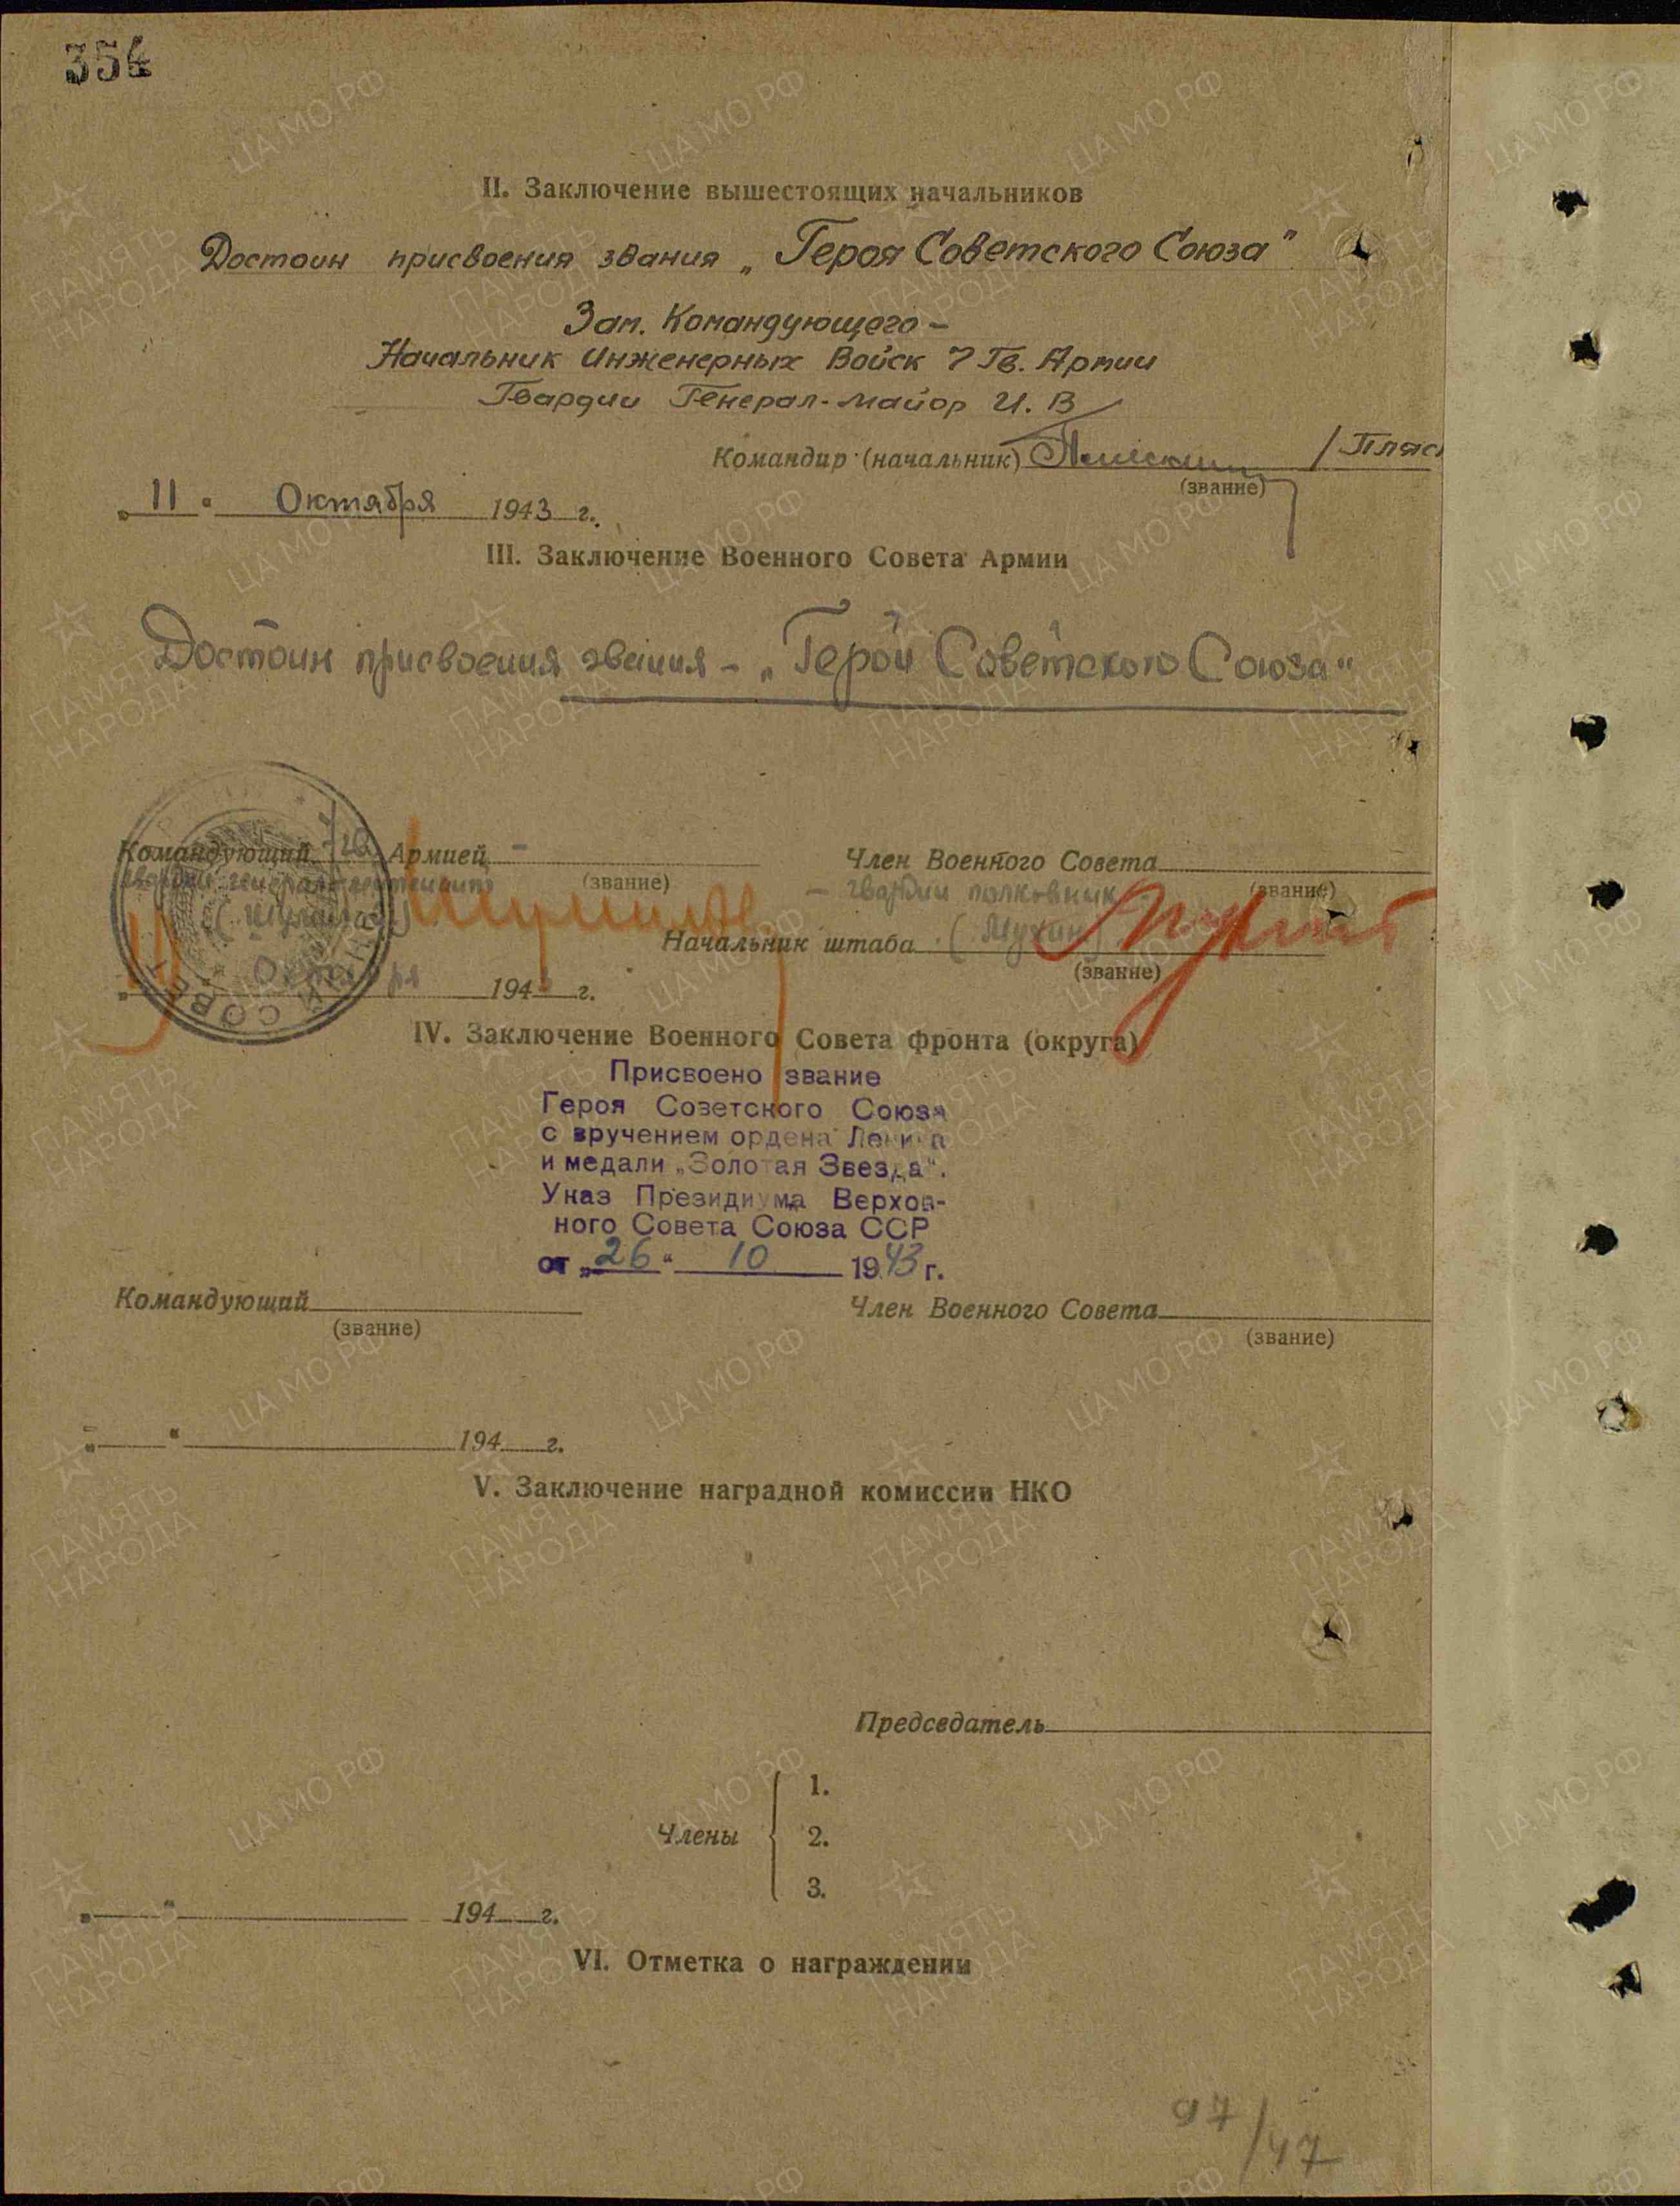 354
II. Заключение вышестоящих начальников
Достоин присвоения звания „Героя Советского Союза"
Зам. Командующего –
Начальник Инженерных Войск 7 Гв. Армии
Гвардии Генерал-майор И. В
Командир (начальник) /Пляс
(звание)
„11" Октября 1943 г.
III. Заключение Военного Совета Армии
Достоин присвоения звания – „Герой Советского Союза"
Командующий 7 гв. Армией –
Член Военного Совета
гвардии генерал-лейтенант
(звание)
– гвардии полковник
(звание)
(Шумилов)
Начальник штаба (Мухин)
(звание)
Октября 194 г.
IV. Заключение Военного Совета фронта (округа)
Присвоено звание
Героя Советского Союза
с вручением ордена Ленина
и медали „Золотая Звезда".
Указ Президиума Верхов-
ного Совета Союза ССР
от „26" 10 1943 г.
Командующий
Член Военного Совета
(звание)
(звание)
„ " 194 г.
V. Заключение наградной комиссии НКО
Председатель
Члены
1.
2.
3.
„ " 194 г.
VI. Отметка о награждении
97/47
ЦА МО РФ
ПАМЯТЬ
НАРОДА